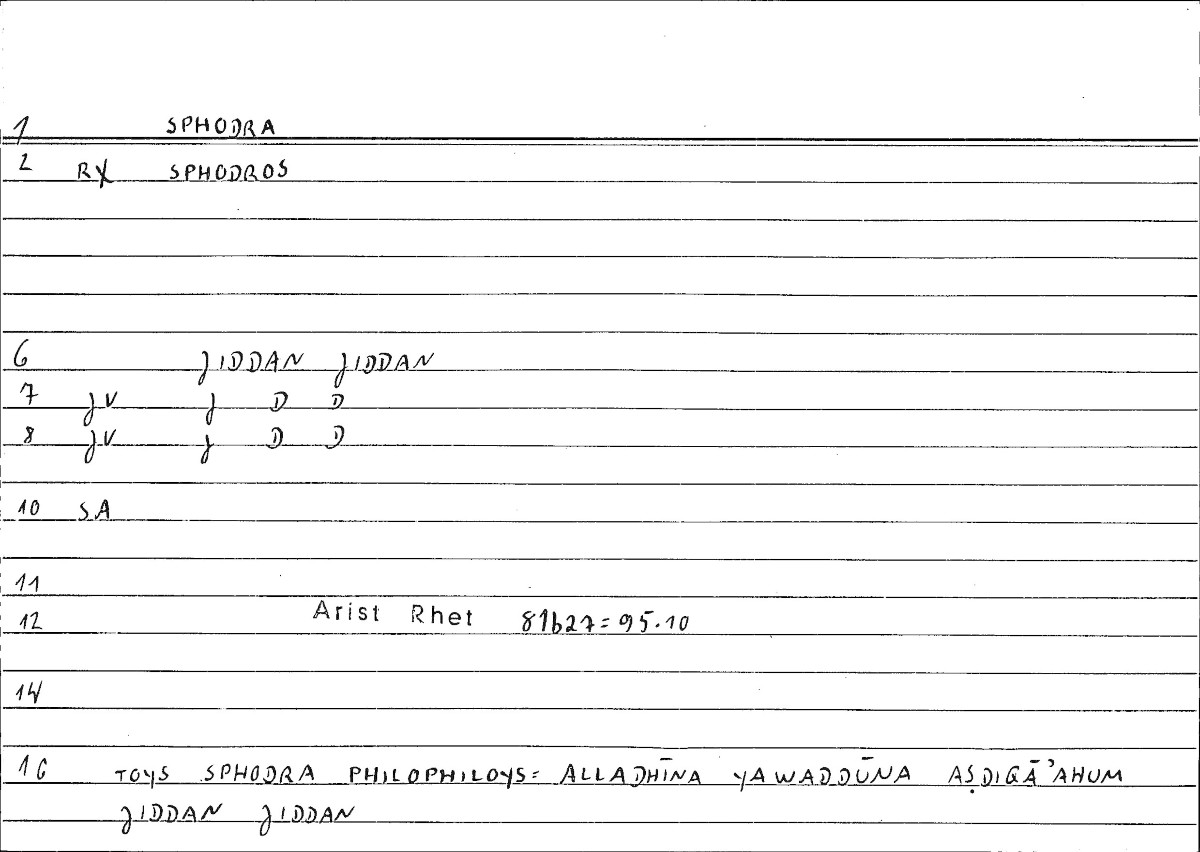 1 SPHODRA
2 RX SPHODROS
6 JIDDAN JIDDAN
7 JV J D D
8 JV J D D
10 SA
11
12 Arist Rhet 81b27=95.10
14
16 TOYS SPHODRA PHILOPHILOYS= ALLADHĪNA YAWADDŪNA AṢDIGĀʾAHUM
JIDDAN JIDDAN